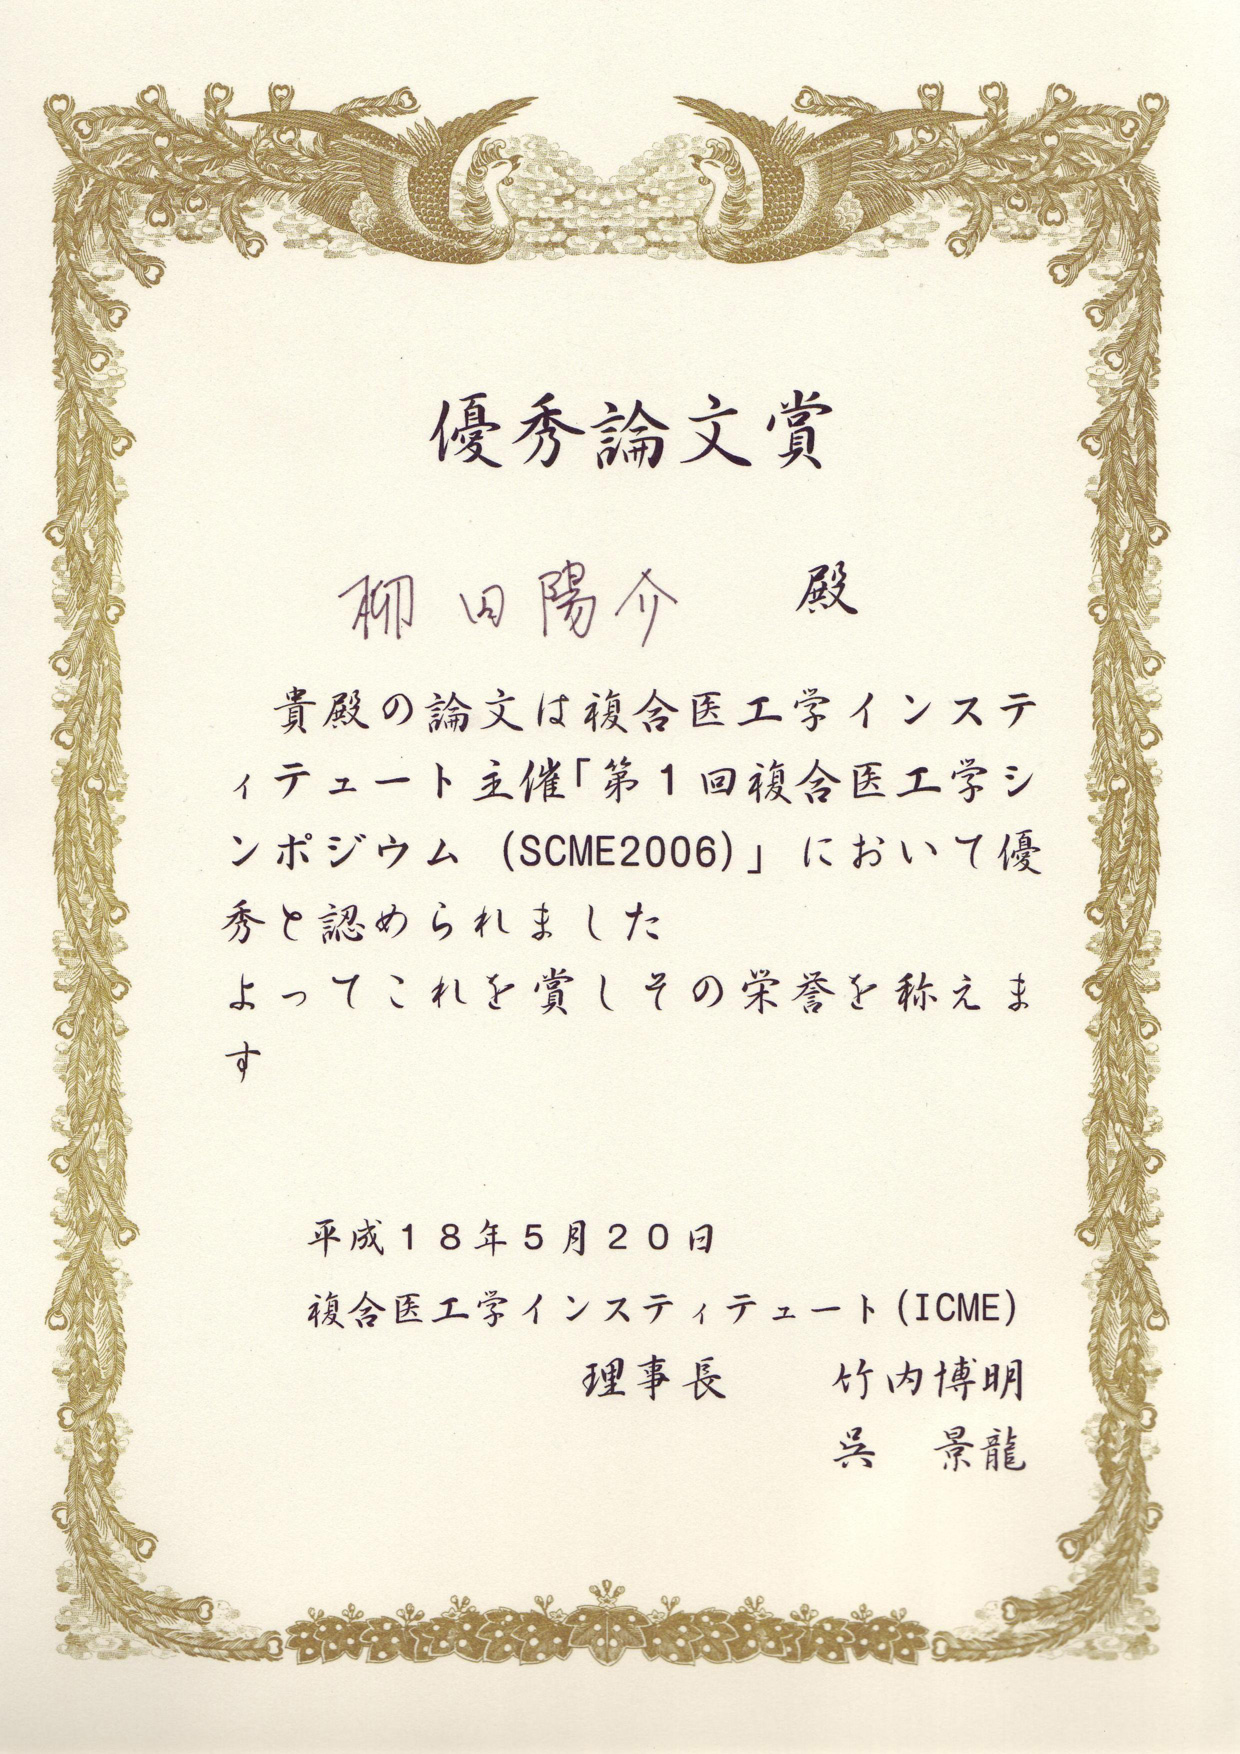 優秀論文賞
柳田陽介 殿
貴殿の論文は複合医工学インステ
ィテュート主催「第1回複合医工学シ
ンポジウム (SCME2006)」において優
秀と認められました
よってこれを賞しその栄誉を称えま
す
平成18年5月20日
複合医工学インスティテュート(ICME)
理事長 竹内博明
呉 景龍